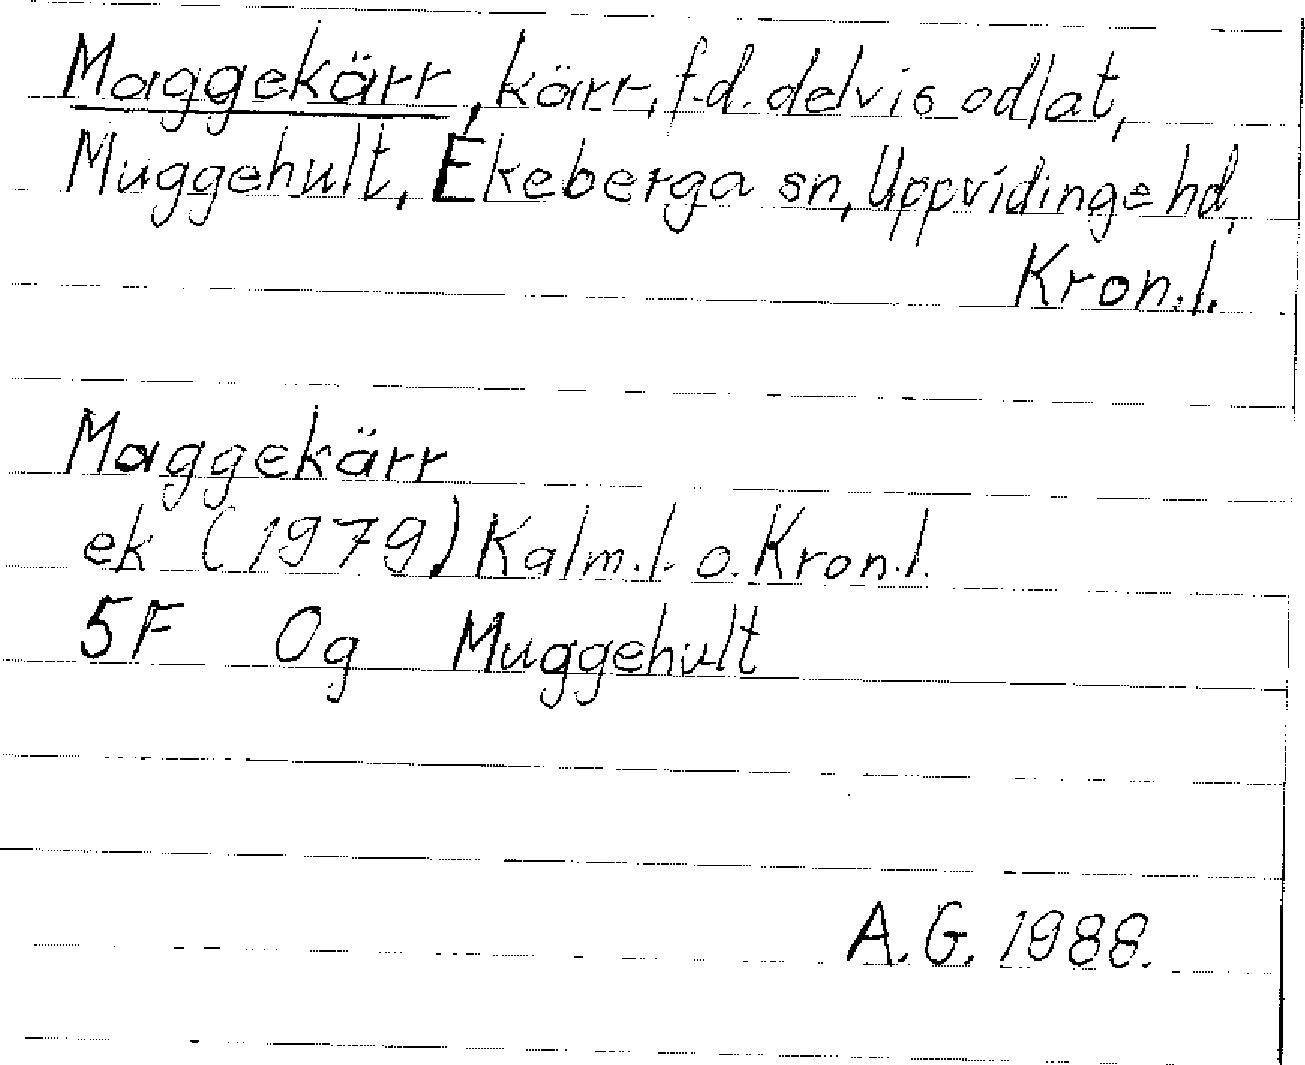 Maggekärr, kärr, f.d. delvis odlat,
Muggehult, Ekeberga sn, Uppvidinge hd,
Kron.l.
Maggekärr
ek (1979) Kalm.l. o. Kron.l.
5F Og Muggehult
A.G. 1988.